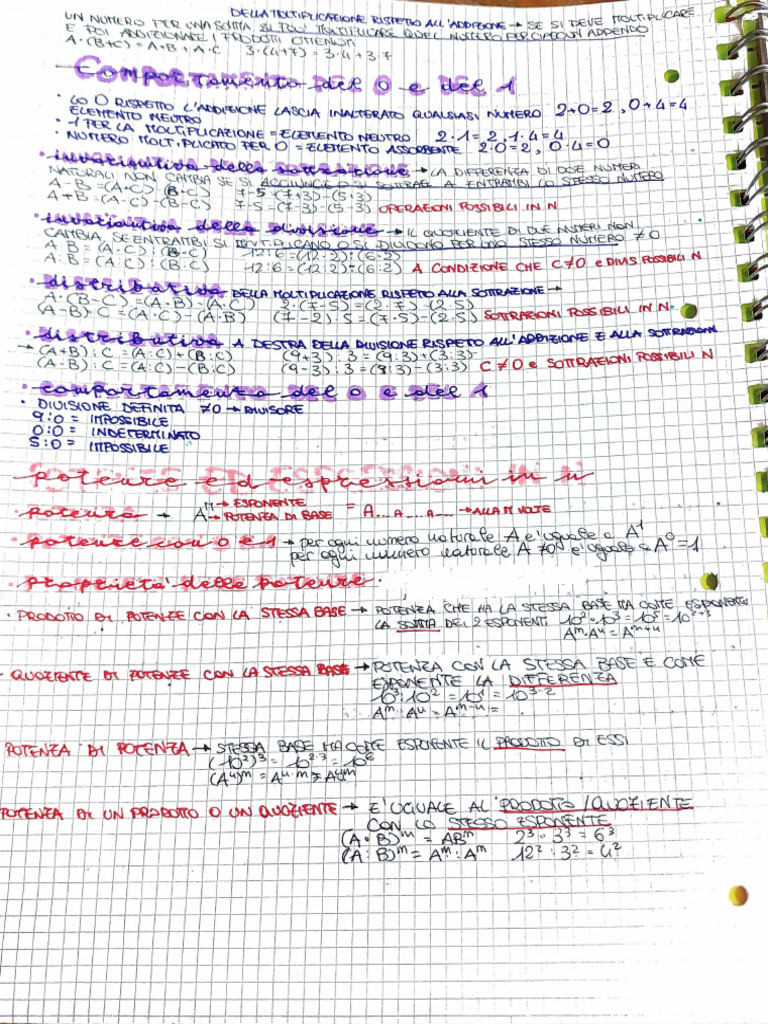 DELLA MOLTIPLICAZIONE RISPETTO ALL'ADDIZIONE → SE SI DEVE MOLTIPLICARE
UN NUMERO PER UNA SOMMA, SI PUO' MOLTIPLICARE QUEL NUMERO PER CIASCUN ADDENDO
E POI ADDIZIONATE I PRODOTTI OTTENUTI
A·(B+C) = A·B + A·C 3·(4+7) = 3·4 + 3·7
Comportamento DEL 0 e DEL 1
• LO 0 RISPETTO L'ADDIZIONE LASCIA INALTERATO QUALSIASI NUMERO 2+0=2, 0+4=4
ELEMENTO NEUTRO
• 1 PER LA MOLTIPLICAZIONE = ELEMENTO NEUTRO 2·1=2, 1·4=4
• NUMERO MOLTIPLICATO PER 0 = ELEMENTO ASSORBENTE 2·0=2, 0·4=0
• invariantiva della sottrazione → LA DIFFERENZA DI DUE NUMERI
NATURALI NON CAMBIA SE SI AGGIUNGE O SI SOTTRAE A ENTRAMBI LO STESSO NUMERO
A-B=(A+C)-(B+C) 7-5=(7+3)-(5+3)
A+B=(A-C)-(B-C) 7-5=(7-3)-(5-3) OPERAZIONI POSSIBILI IN N
• invariantiva della divisione → IL QUOZIENTE DI DUE NUMERI NON
CAMBIA, SE ENTRAMBI SI MOLTIPLICANO O SI DIVIDONO PER UNO STESSO NUMERO ≠0
A:B=(A·C):(B·C) 12:6=(12·2):(6·2)
A:B=(A:C):(B:C) 12:6=(12:2):(6:2) A CONDIZIONE CHE C≠0 e DIVIS POSSIBILI N
• distributiva DELLA MOLTIPLICAZIONE RISPETTO ALLA SOTTRAZIONE →
A·(B-C)=(A·B)-(A·C) 2·(7-5)=(2·7)-(2·5)
(A-B)·C=(A·C)-(A·B) (7-2)·5=(7·5)-(2·5) SOTTRAZIONI POSSIBILI IN N
• distributiva A DESTRA DELLA DIVISIONE RISPETTO ALL'ADDIZIONE E ALLA SOTTRAZIONI
→ (A+B):C=(A:C)+(B:C) (9+3):3=(9:3)+(3:3)
(A-B):C=(A:C)-(B:C) (9-3):3=(9:3)-(3:3) C≠0 e SOTTRAZIONI POSSIBILI N
• comportamento del 0 e del 1
• DIVISIONE DEFINITA ≠0 → DIVISORE
9:0 = IMPOSSIBILE
0:0 = INDETERMINATO
5:0 = IMPOSSIBILE
potenze ed espressioni in N
• potenza → Aᵐ → ESPONENTE → POTENZA DI BASE = A...A...A... → ALLA M VOLTE
• potenze con 0 e 1 → per ogni numero naturale A è uguale a A¹
per ogni numero naturale A ≠0 è uguale a A⁰=1
• proprietà delle potenze.
• PRODOTTO DI POTENZE CON LA STESSA BASE → POTENZA CHE HA LA STESSA BASE HA COME ESPONENTE
LA SOMMA DEI 2 ESPONENTI 10²·10³=10⁵=10²⁺³
Aᵐ·Aⁿ=Aᵐ⁺ⁿ
• QUOZIENTE DI POTENZE CON LA STESSA BASE → POTENZA CON LA STESSA BASE E COME
ESPONENTE LA DIFFERENZA
10³:10²=10¹=10³⁻²
Aᵐ:Aⁿ=Aᵐ⁻ⁿ=
POTENZA DI POTENZA → STESSA BASE HA COME ESPONENTE IL PRODOTTO DI ESSI
(10²)³=10²·³=10⁶
(Aⁿ)ᵐ=Aⁿ·ᵐ=Aⁿᵐ
POTENZA DI UN PRODOTTO O UN QUOZIENTE → E' UGUALE AL PRODOTTO/QUOZIENTE
CON LO STESSO ESPONENTE
(A·B)ᵐ=ABᵐ 2³·3³=6³
(A:B)ᵐ=Aᵐ:Aᵐ 12²:3²=4²